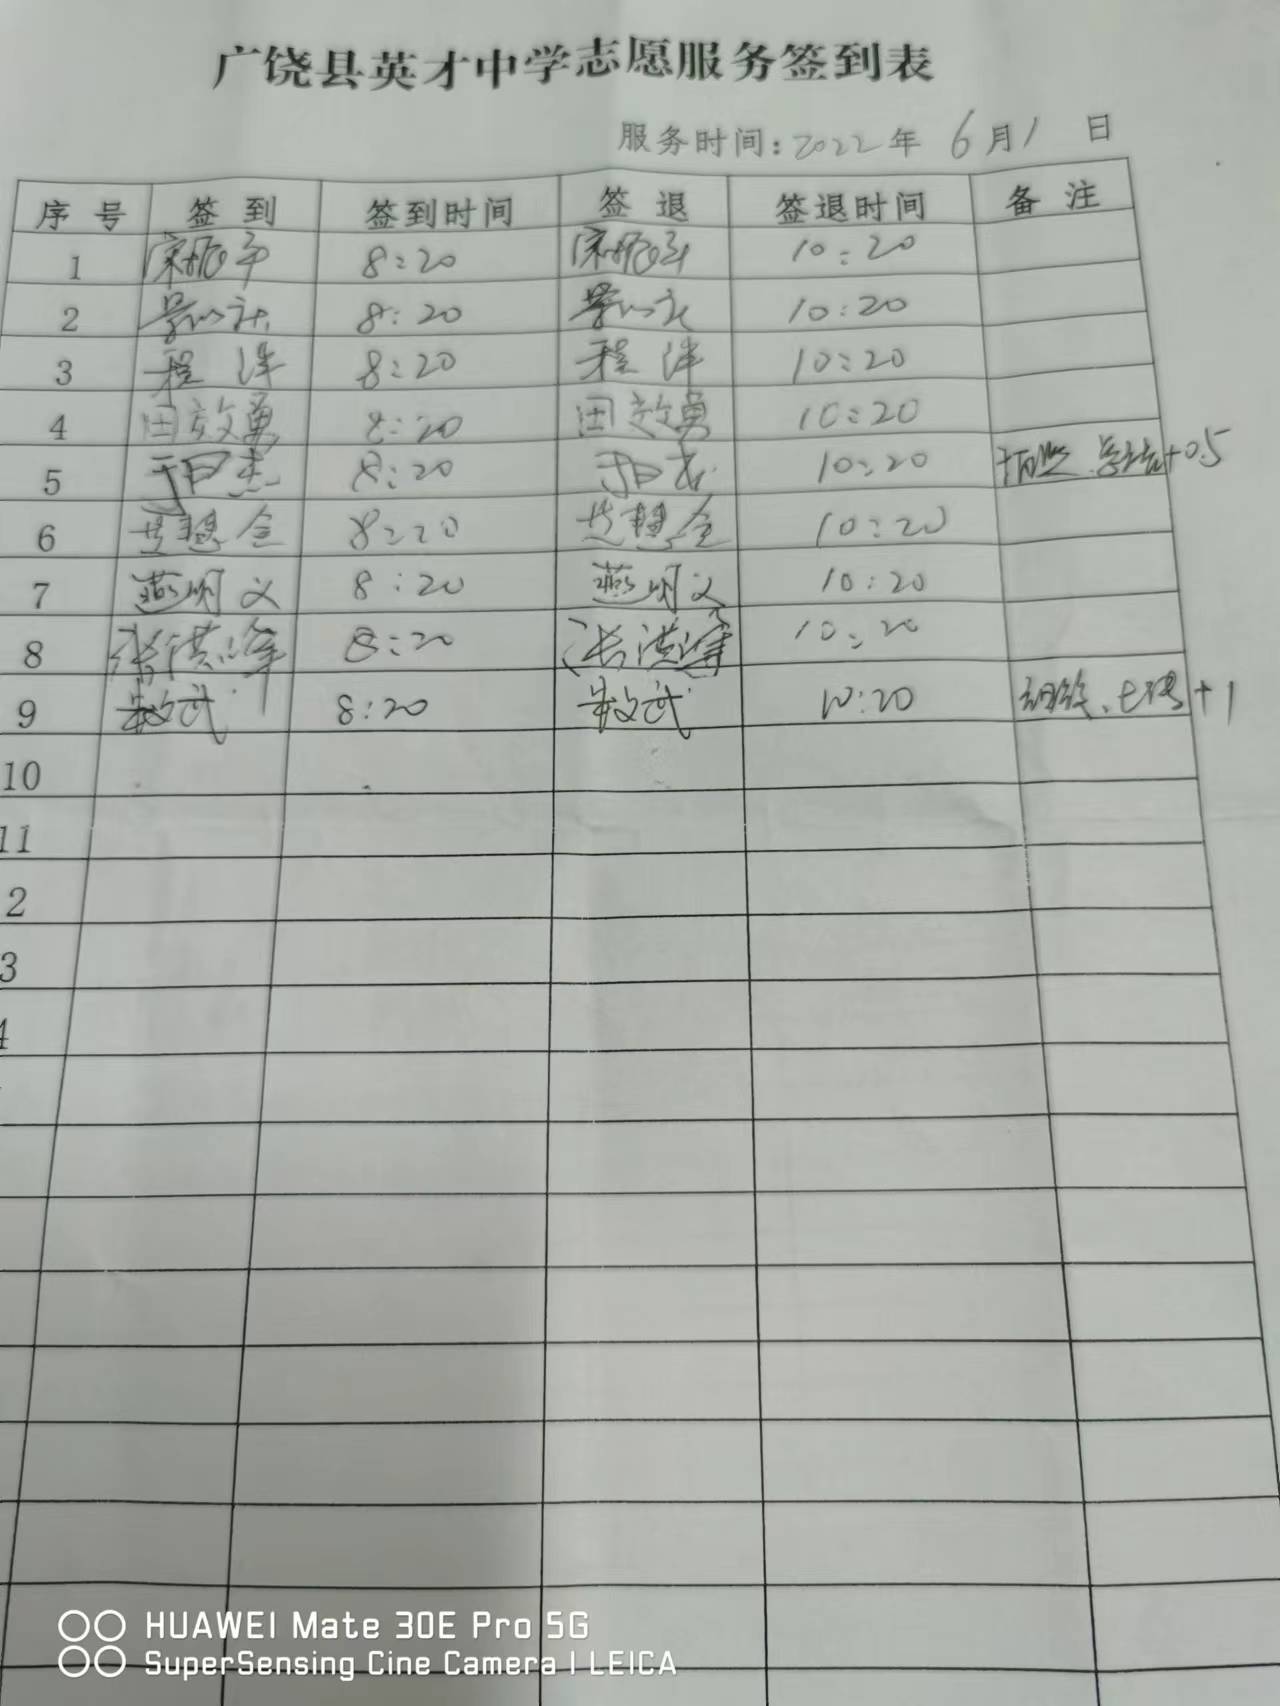 广饶县英才中学志愿服务签到表
服务时间：2022年 6月1 日
序号 签到 签到时间 签退 签退时间 备注
1 8:20 10:20
2 8:20 10:20
3 程洋 8:20 程洋 10:20
4 田效勇 8:20 田效勇 10:20
5 8:20 10:20 +0.5
6 8:20 10:20
7 燕明义 8:20 燕明义 10:20
8 张洪峰 8:20 张洪峰 10:20
9 8:20 10:20 +1
10
11
2
3
4
HUAWEI Mate 30E Pro 5G
SuperSensing Cine Camera | LEICA